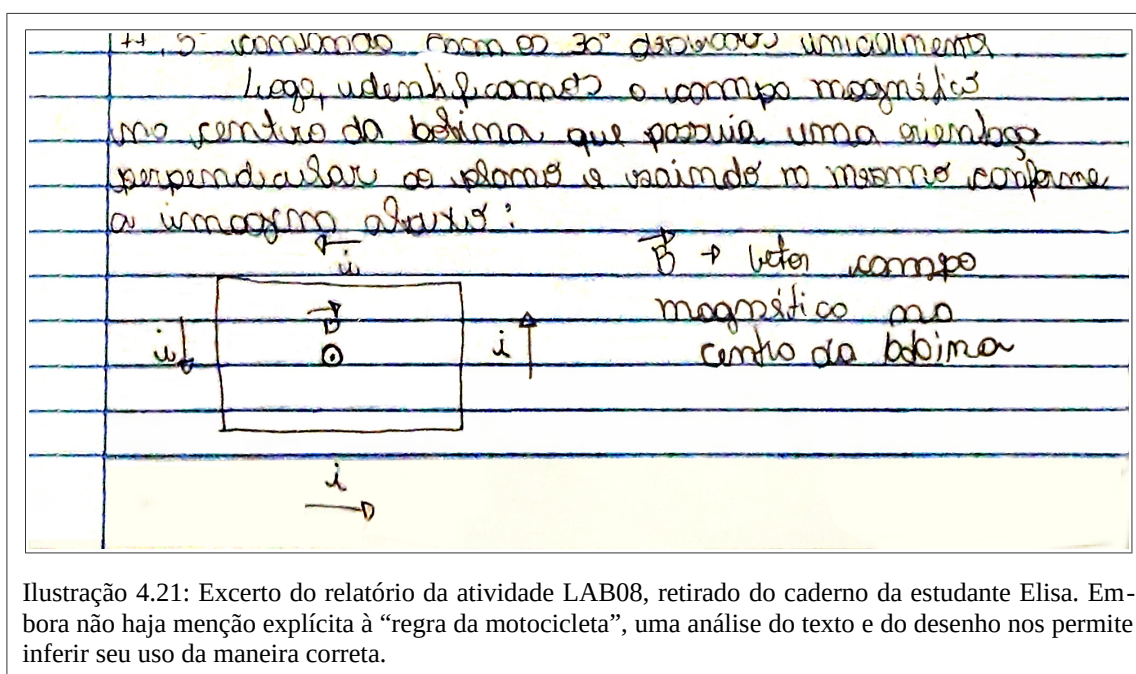 os 30°
Logo, identificamos o campo magnético
no centro da bobina que possuia uma
perpendicular ao plano e saindo mesmo conforme
a imagem abaixo:
i
B → vetor campo
B
magnético no
i
i
centro da bobina
i
Ilustração 4.21: Excerto do relatório da atividade LAB08, retirado do caderno da estudante Elisa. Em-
bora não haja menção explícita à “regra da motocicleta”, uma análise do texto e do desenho nos permite
inferir seu uso da maneira correta.